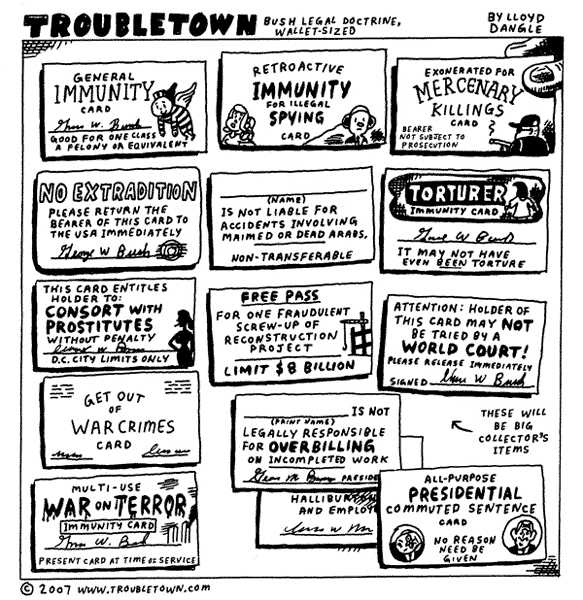 TROUBLETOWN
BUSH LEGAL DOCTRINE,
WALLET-SIZED
BY LLOYD
DANGLE
GENERAL
IMMUNITY
CARD
George W. Bush
GOOD FOR ONE CLASS
A FELONY OR EQUIVALENT
RETROACTIVE
IMMUNITY
FOR ILLEGAL
SPYING
CARD
EXONERATED FOR
MERCENARY
KILLINGS
CARD
BEARER
NOT SUBJECT TO
PROSECUTION
NO EXTRADITION
PLEASE RETURN THE
BEARER OF THIS CARD TO
THE USA IMMEDIATELY
George W Bush
(NAME)
IS NOT LIABLE FOR
ACCIDENTS INVOLVING
MAIMED OR DEAD ARABS.
NON-TRANSFERABLE
TORTURER
IMMUNITY CARD
George W Bush
IT MAY NOT HAVE
EVEN BEEN TORTURE
THIS CARD ENTITLES
HOLDER TO:
CONSORT WITH
PROSTITUTES
WITHOUT PENALTY
George W Bush
D.C. CITY LIMITS ONLY
FREE PASS
FOR ONE FRAUDULENT
SCREW-UP OF
RECONSTRUCTION
PROJECT
LIMIT $8 BILLION
ATTENTION: HOLDER OF
THIS CARD MAY NOT
BE TRIED BY A
WORLD COURT!
PLEASE RELEASE IMMEDIATELY
SIGNED George W Bush
GET OUT
OF
WAR CRIMES
CARD
IS NOT
(PRINT NAME)
LEGALLY RESPONSIBLE
FOR OVERBILLING
ON INCOMPLETED WORK
George W Bush PRESIDE
HALLIBUR
AND EMPLOY
THESE WILL
BE BIG
COLLECTOR'S
ITEMS
MULTI-USE
WAR ON TERROR
IMMUNITY CARD
George W. Bush
PRESENT CARD AT TIME OF SERVICE
ALL-PURPOSE
PRESIDENTIAL
COMMUTED SENTENCE
CARD
NO REASON
NEED BE
GIVEN
© 2007 WWW.TROUBLETOWN.COM